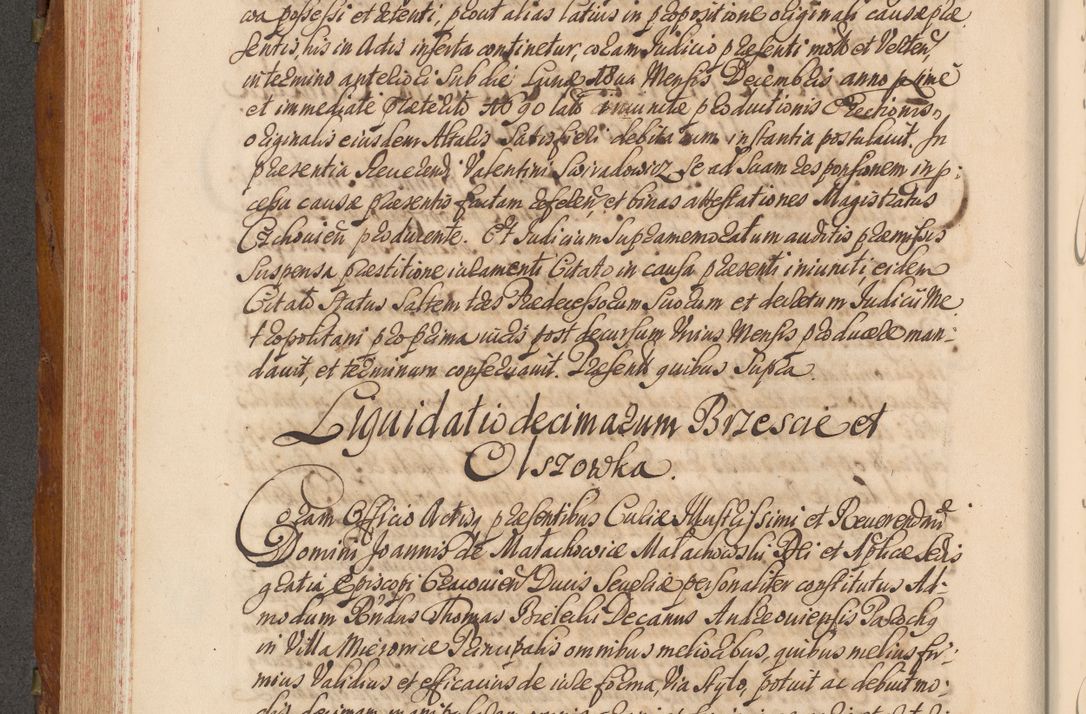 wa possessi et retenti, prout alias latius in propositione originali causæ præ
sentis his in Actis inserta continetur, coram Judicio præsenti moto et Verten͂
in termino
et immediate præterito productionis Erectionis
originalis eiusdem Altaris satisfieri debitarum instantia postulavit. In
præsentia Reverendi Valentini Swiradowicz se ad suam responsionem in p:
cessu causæ præsentis factam referen͂, et binas attestationes Magistratus
Czchovien͂ producente. Et Judicium supramemoratum auditis præmissis
suspensa præstitione iuramenti Citato in causa præsenti iniuncti, eidem
Citato status saltem tres Prædecessorum suorum et decretum Judicii Me
tropolitani pro prima iuris post decursum unius Mensis producere man-
davit, et terminum conservavit. Præsent: quibus supra.
Liquidatio decimarum Brzescie et
Olszowka.
Coram Officio Actisq præsentibus Curiæ Illustrissimi et Reverendmi
Domini Joannis de Małachowice Małachowski Dei et Aplicæ Sedis
gratia Episcopi Cracovien͂ Ducis Severiæ personaliter constitutus Ad-
modum Rndus Thomas Decanus Andreoviensis Parochq
in Villa Mierowice Principalis omnibus melioribus, quibus melius fir-
mius validius et efficacius de iure forma, via stylo, potuit ac debuit mo-
dis decimam manipularem